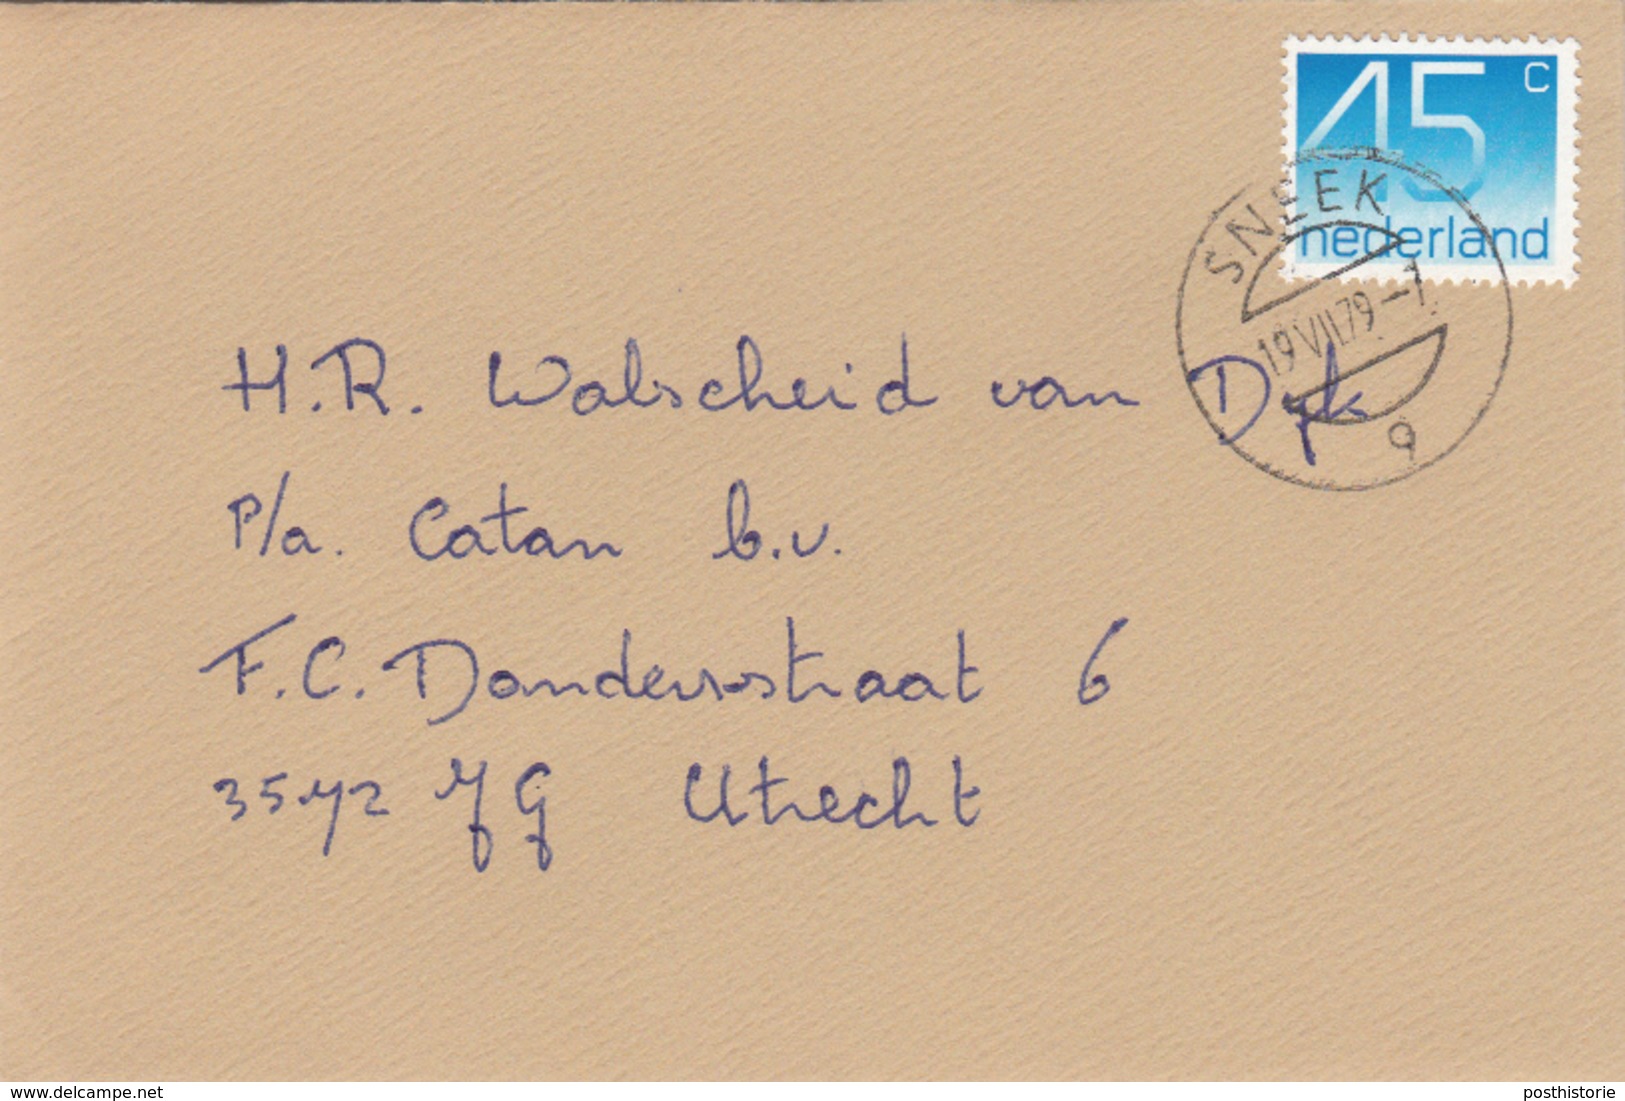 45 c
nederland
SNEEK
19 VII.79 – 7
9
H.R. Walscheid van Dyk
p/a. Catan b.v.
F.C. Dondersstraat 6
3572 JG Utrecht
www.delcampe.net
posthistorie